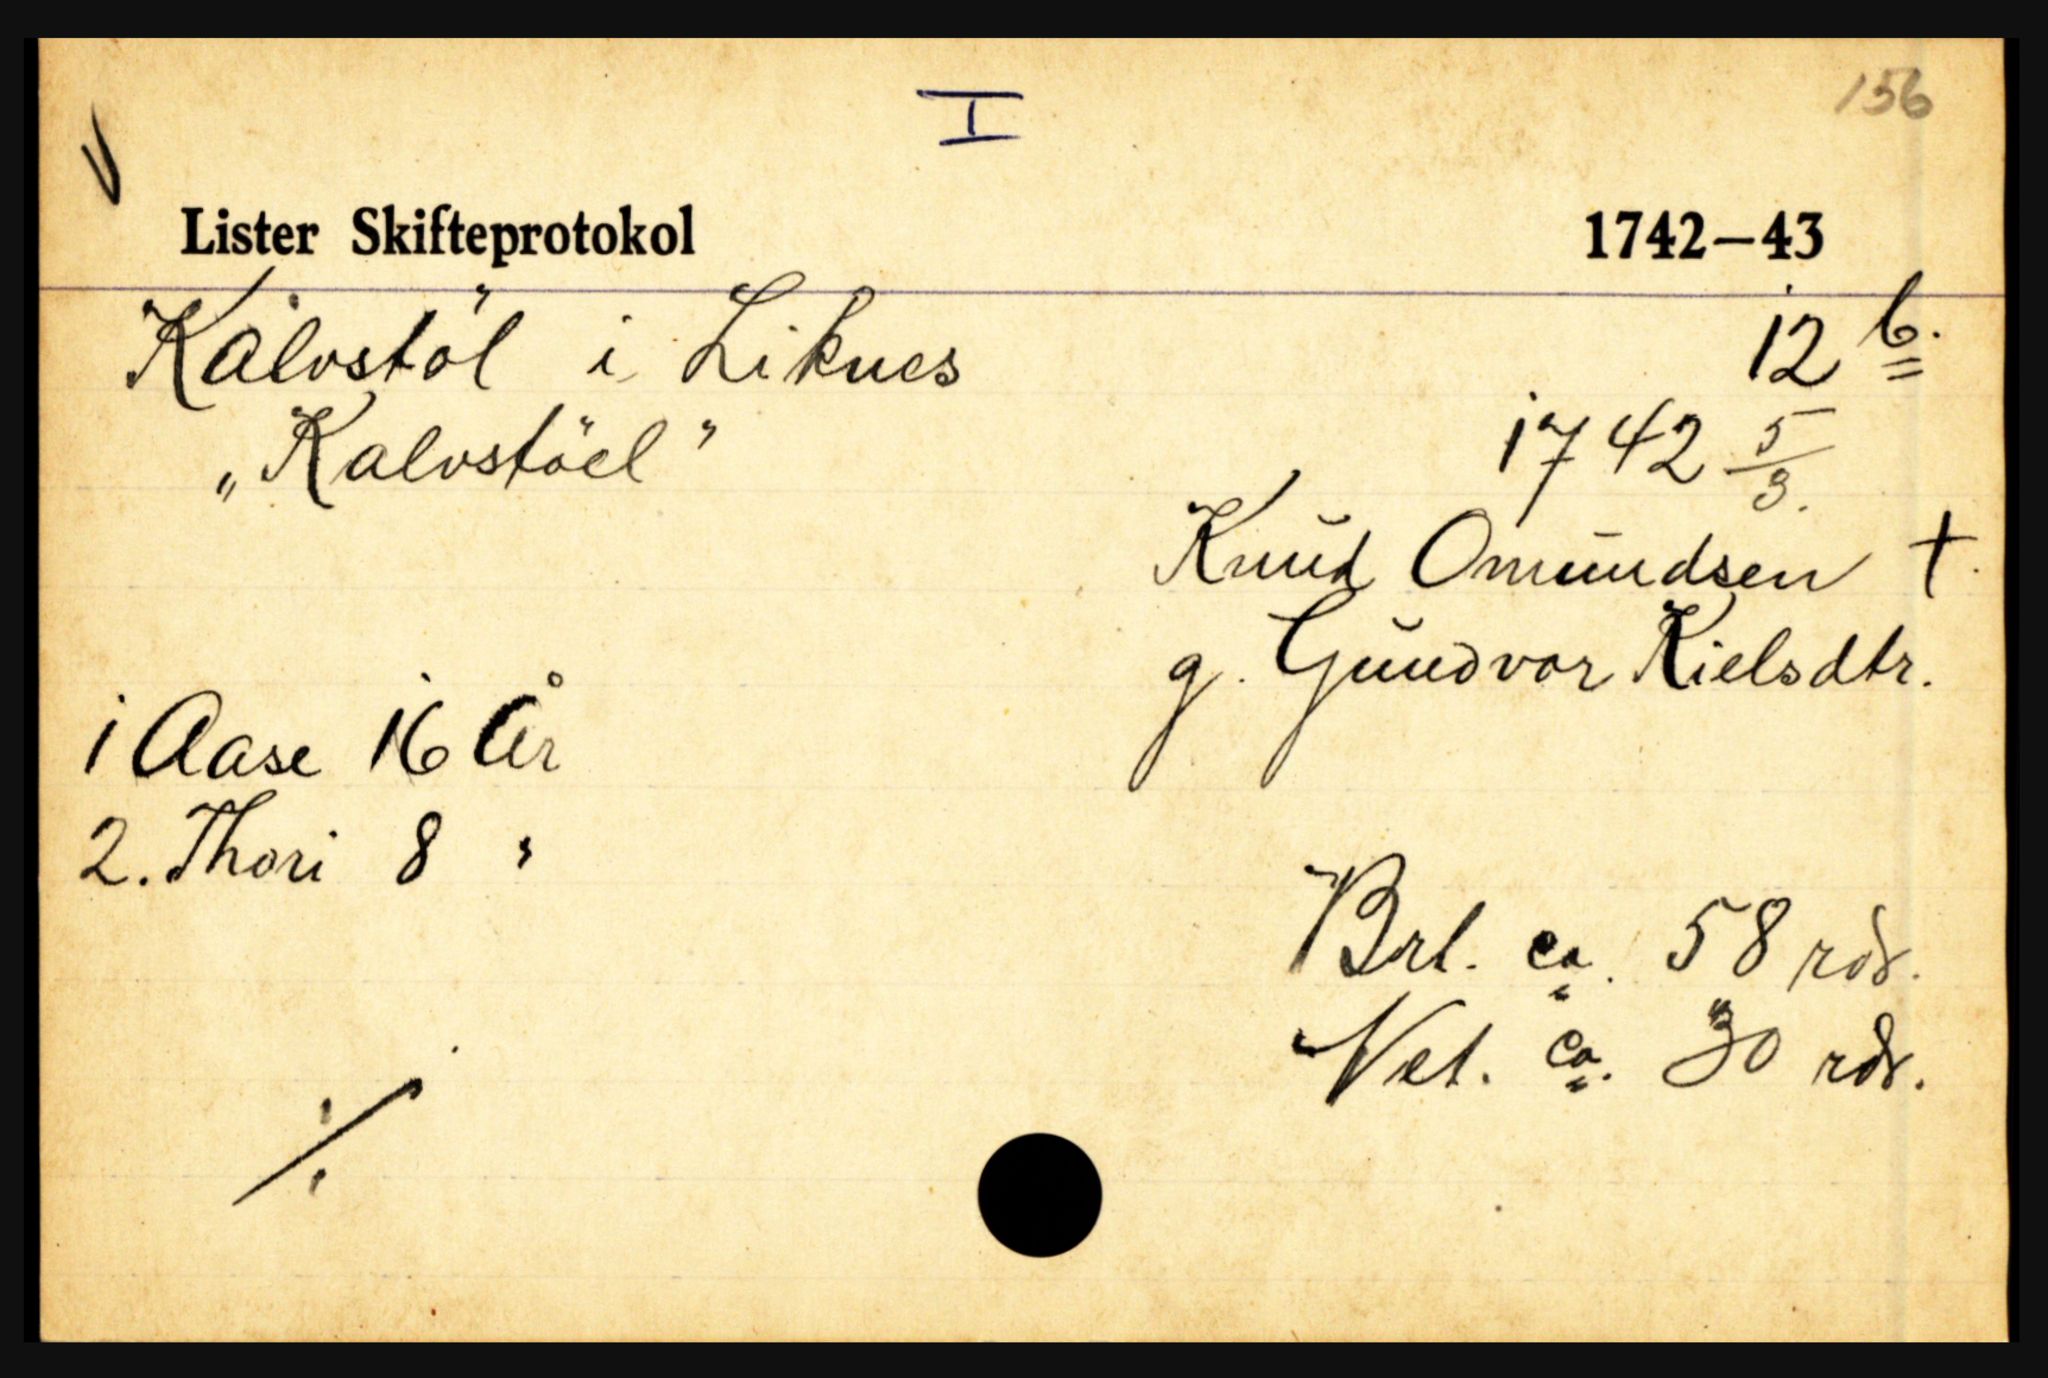 I
156
V
Lister Skifteprotokol 1742–43
Kålvstöl i Liknes 12 b.
„Kalvstöel” 1742 5/3.
Knud Omundsen †.
g. Gundvor Kielsdtr.
1 Aase 16 År
2. Thori 8 "
Brt. ca. 58 rdr.
Net. ca. 30 rdr.
./.